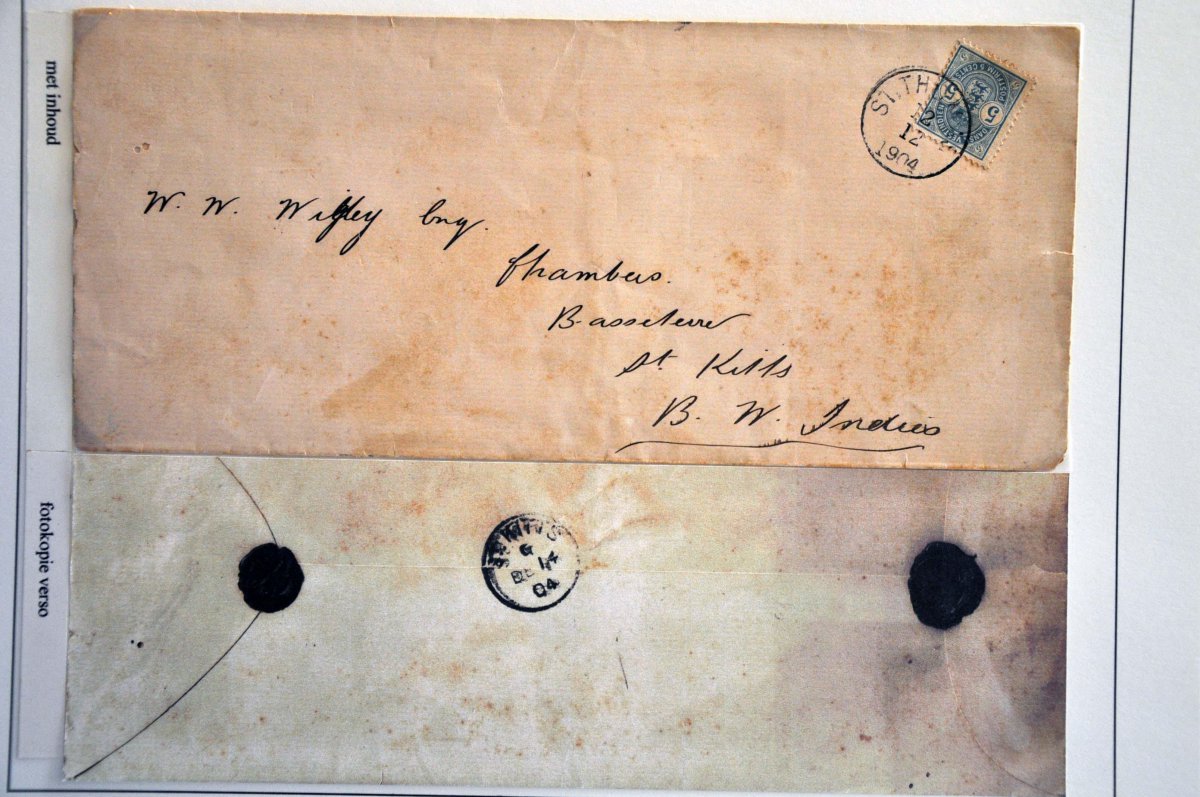 met inhoud
W. W. Wigley Esq.
Chambers.
Basseterre
St. Kitts
B. W. Indies
ST. TH
12
12
1904
5
5
fotokopie verso
ST KITTS
G
DE 14
04